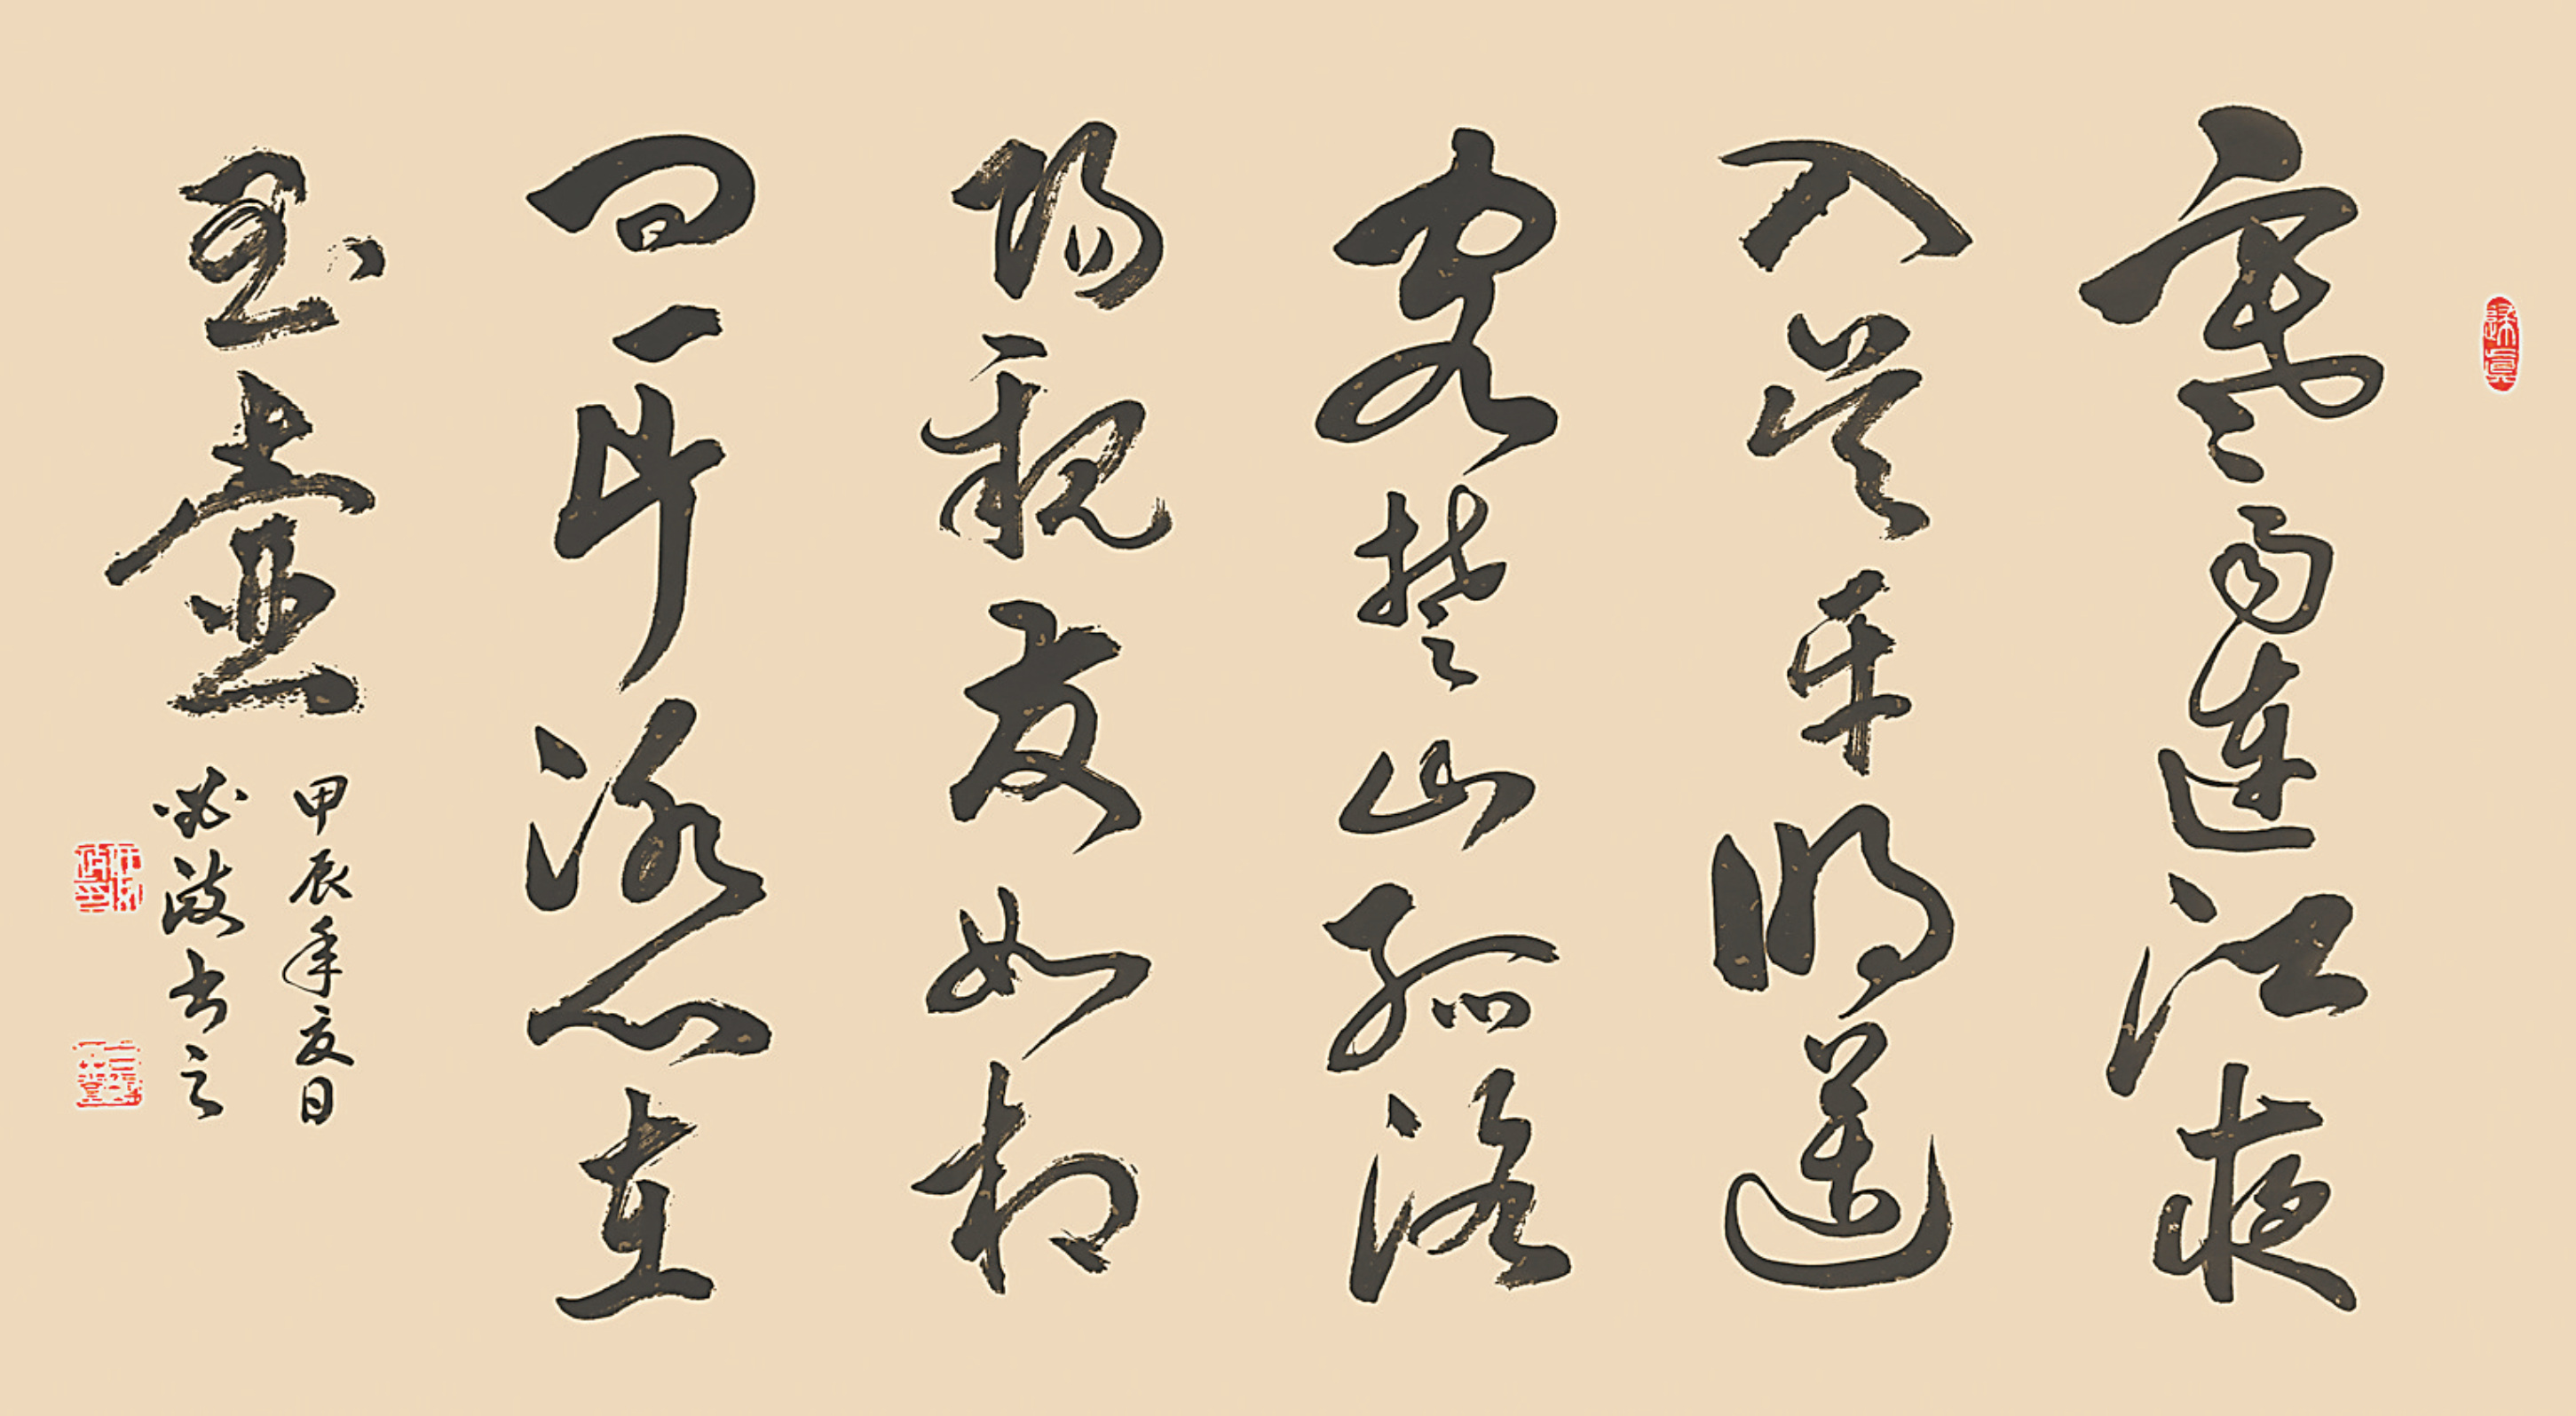 寒雨連江夜
入吴平明送
客楚山孤洛
陽親友如相
問一片冰心在
玉壺
甲辰年夏日
波书之